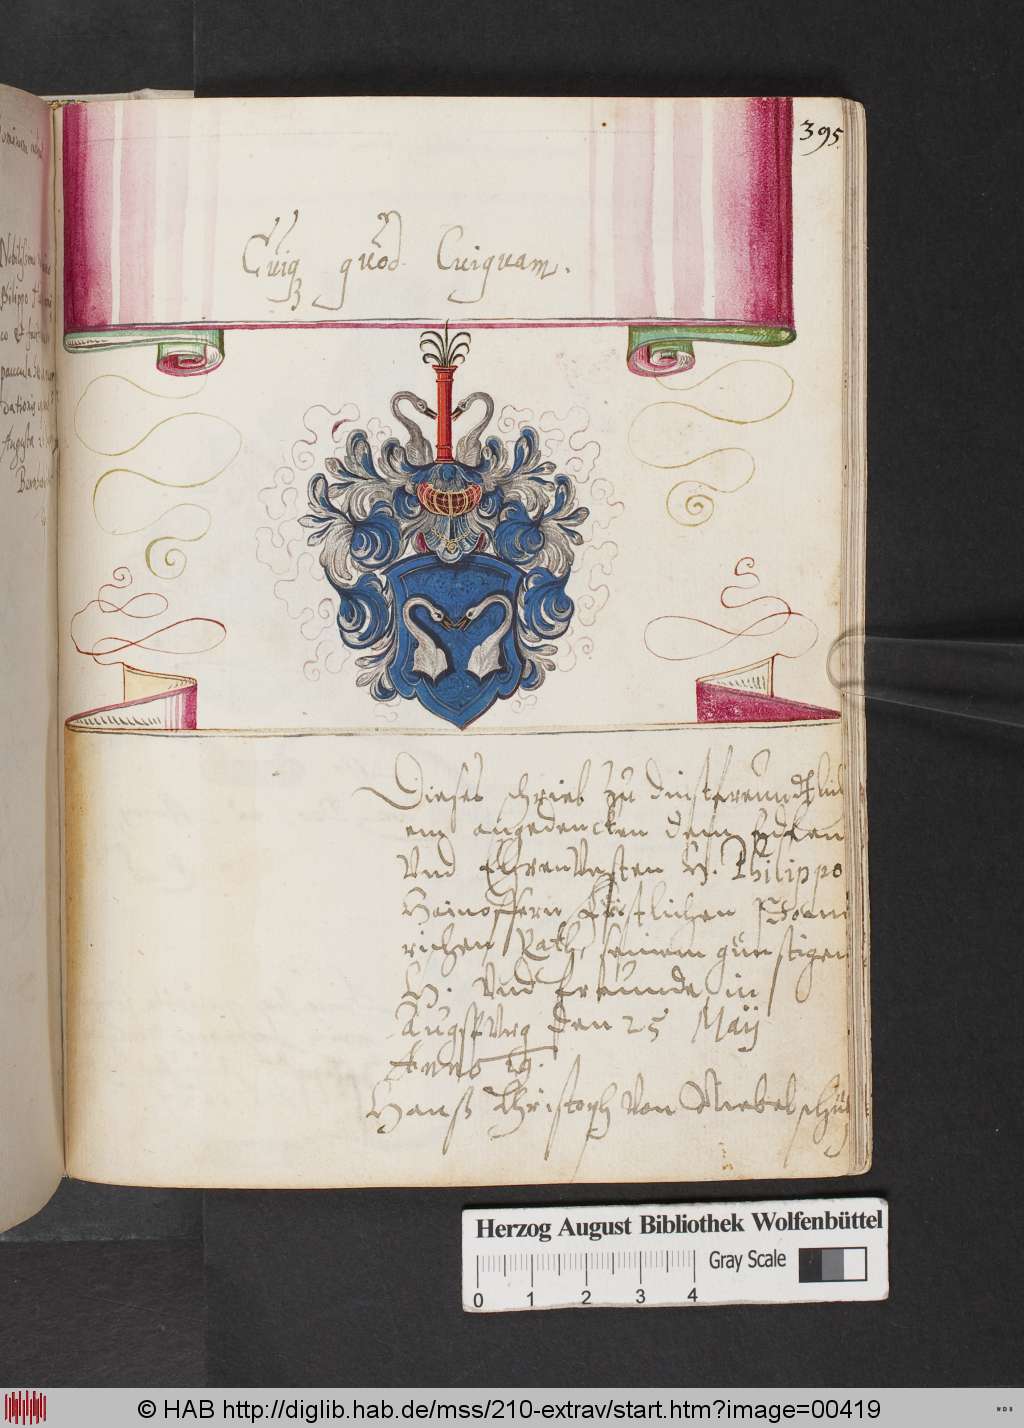 395.
Cuiq3 quod Cuiquam.
Dieses schrieb zu dinstfreundtlich
em angedencken dem Edlen
Vnd Ehrenvesten H. Philippo
Hainhoffern Fürstlichen Pom
rischen Rath, seinem günstigen
H. Vnd freunde in
Augspurg den 25 Maij
Anno 19.
Hanß Christoph von Niebelschü
Herzog August Bibliothek Wolfenbüttel
Gray Scale
0 1 2 3 4
© HAB http://diglib.hab.de/mss/210-extrav/start.htm?image=00419